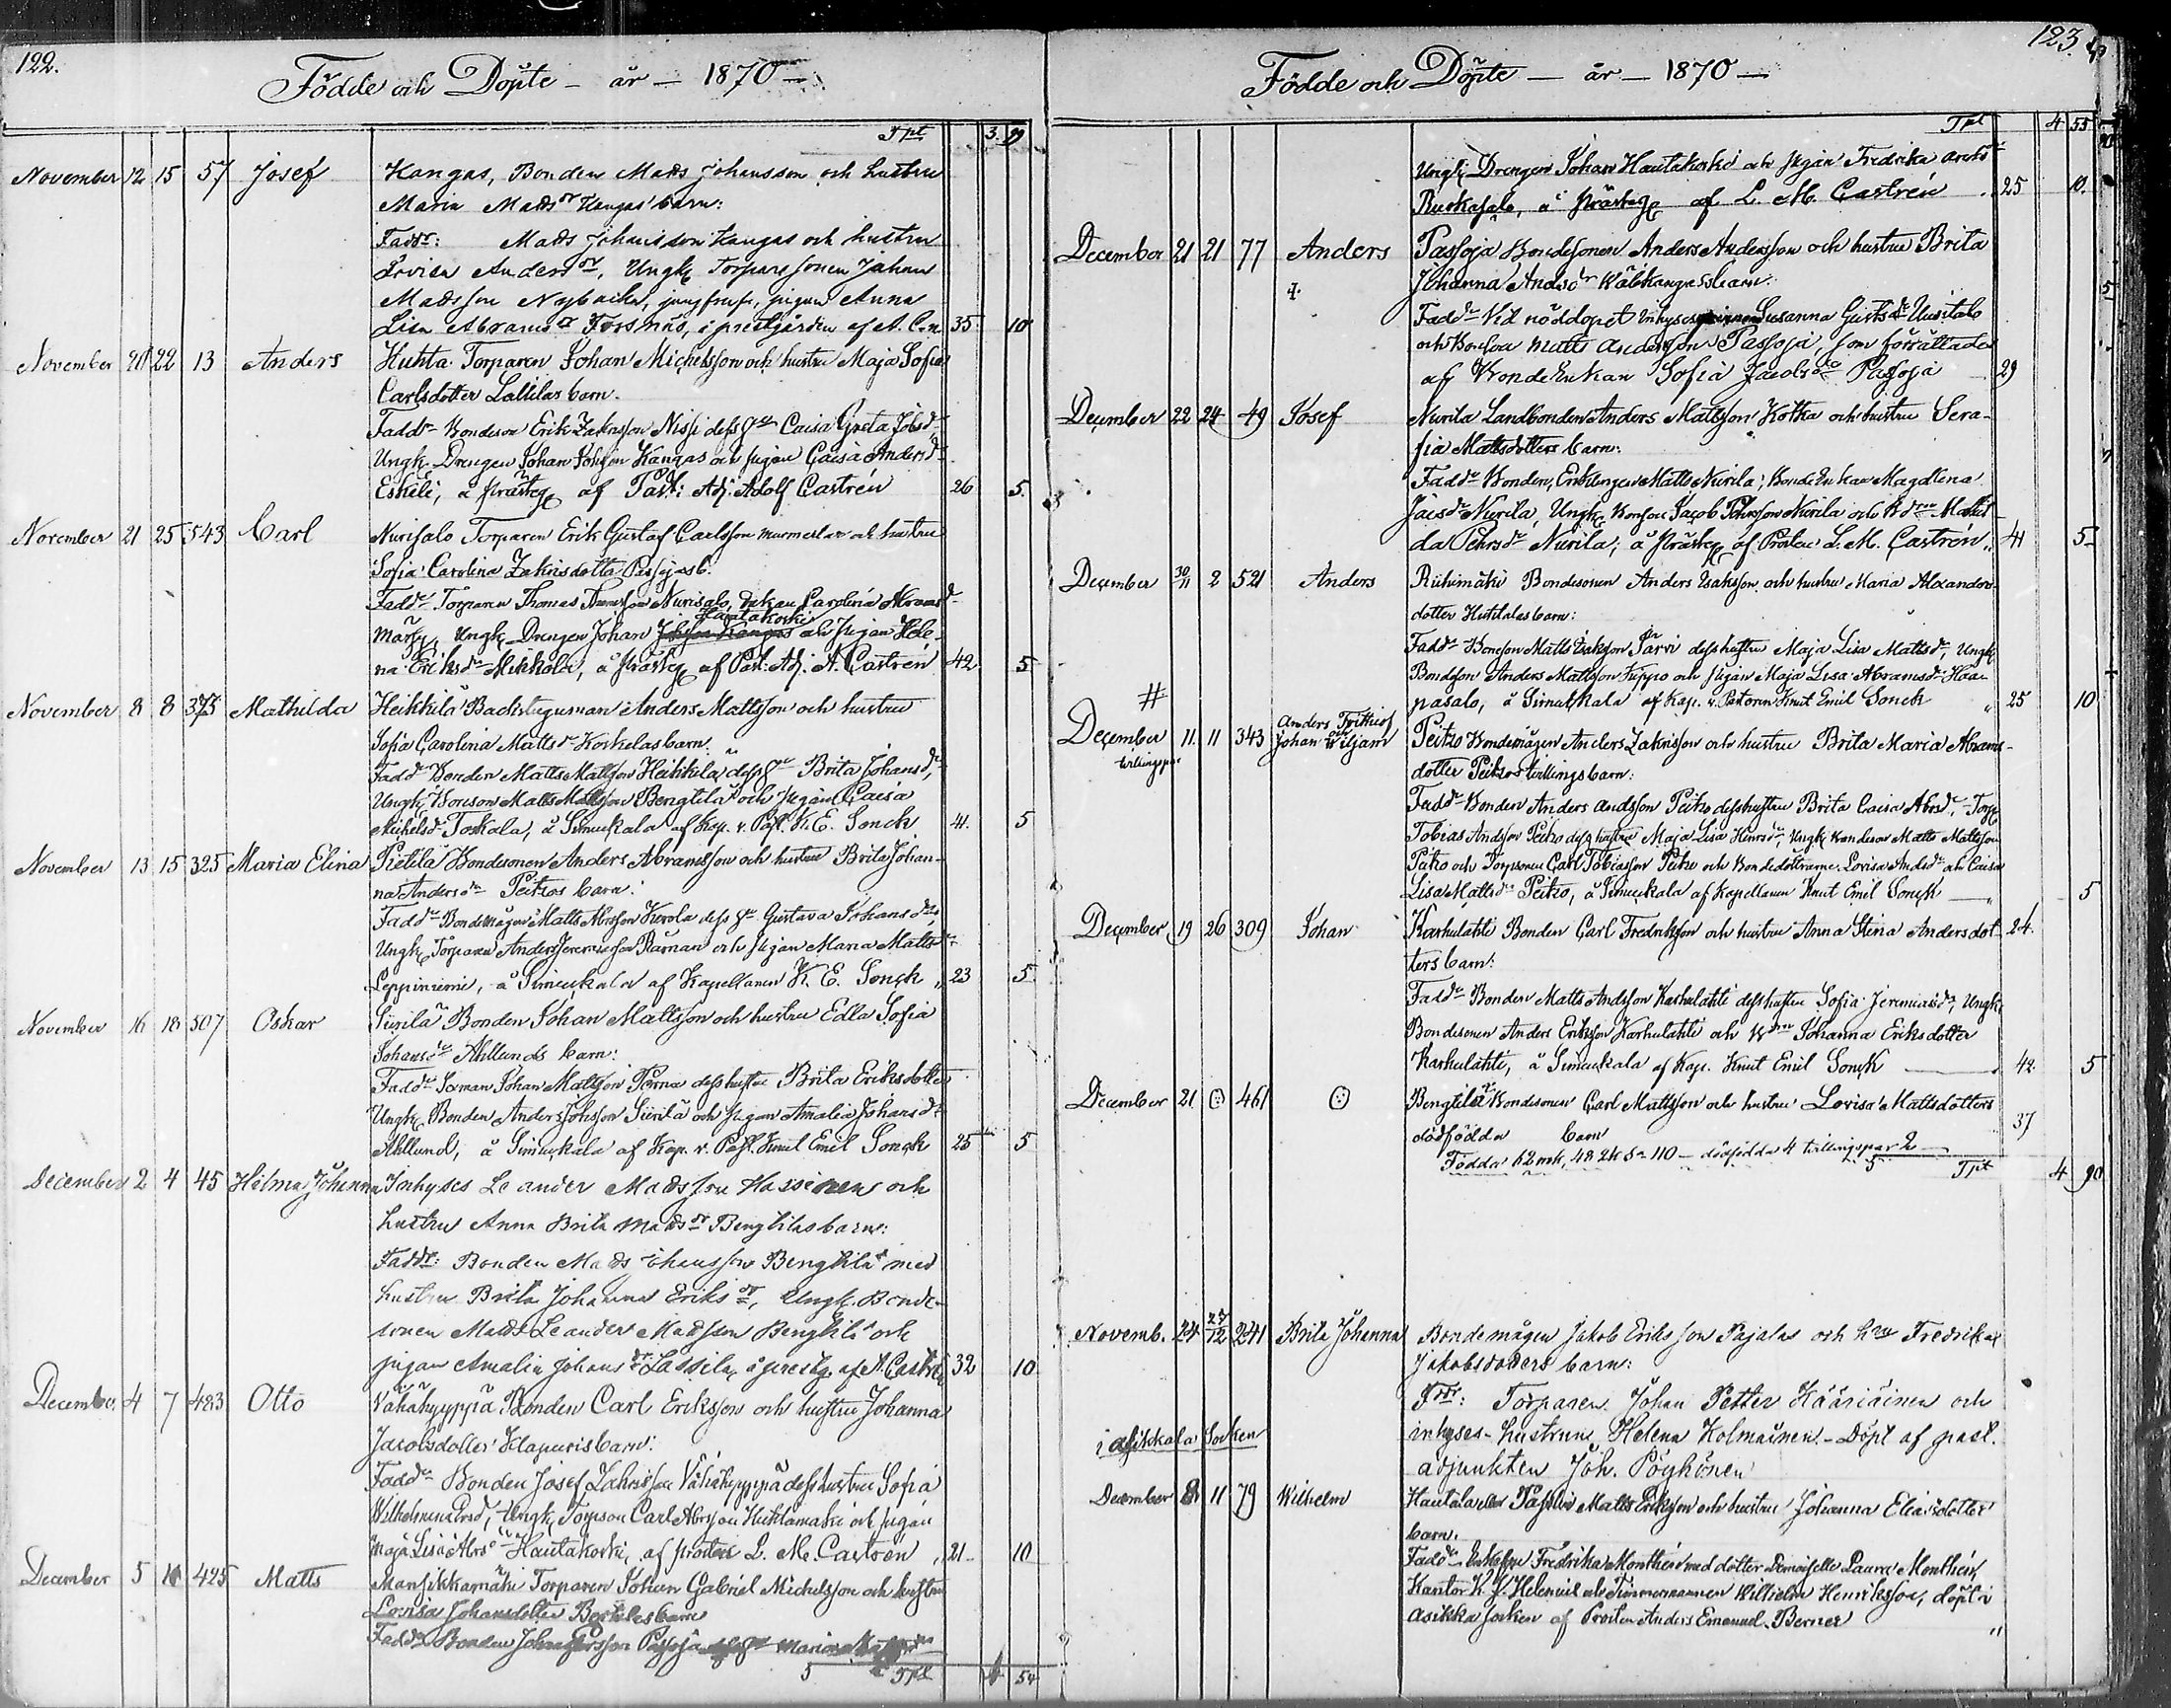 122.
Födde och Döpte - år - 1870 -
Tpt 3. 99
November 12 15 57 Josef Kangas, Bonden Mads Johansson och hustru
Maria Mads dr Kangas' barn:
Faddr: Mads Johansson Kangas och hustru
Lovisa Anders dr, Ungk Torparesonen Johan
Madsson Nybacka, jungfrun, pigan Anna
Lisa Abrams dr Forsnäs, i prestgården af A. C:n 35 10
November 20 22 13 Anders Huhta Torparen Johan Michelsson och hustru Maja Sofia
Carlsdotter Lallilas barn.
Faddr Bondeson Erik Zakrisson Nisji dess hu Caisa Greta Johsdr
Ungk. Drengen Johan Johsson Kangas och pigan Caisa Andersdr
Eskeli, å prästg af Past: Adj. Adolf Castrén 26 5.
November 21 25 543 Carl Nurisalo Torparen Erik Gustaf Carlsson murmestare och hustru
Sofia Carolina Zakrisdotter Passojas b.
Faddr Torparen Thomas Thomasson Nurisalo, Enkan Carolina Abramsdr
Hautakoski
Ungk Drengen Johan Johsson Kangas och pigan Hele-
na Eriksdr Mikkola, å prästg af Past: Adj. A. Castrén 42 5
November 8 8 375 Mathilda Heikkilä Backstugusman Anders Mattsson och hustru
Sofia Carolina Mattsdr Koskelas barn.
Faddr Bonden Matts Mattsson Heikkilä dess hu Brita Johansdr,
Ungk Boneson Matts Mattsson Bengtilä och pigan Caisa
Michelsdr Toskala, å Simuckala af Kap. v. Past. K. E. Sonck 41. 5
November 13 15 325 Maria Elina Pietilä Bondesonen Anders Abramsson och hustru Brita Johan-
na Andersdr Peitzos barn.
Faddr Bondemågen Matts Abrsson Kerola dess hu Gustava Johansdr
Ungk Torparen Anders Jeremiasson Pärnan och pigan Maria Mattsdr
Leppiniemi, å Simuckala af Kapellanen K. E. Sonck „ 23 5.
November 16 18 507 Oskar Siirilä Bonden Johan Mattsson och hustru Edla Sofia
Johansdr Ahllunds barn:
Faddr Sexman Johan Mattsson Perna dess hustru Brita Eriksdotter
Ungk Bonden Anders Johsson Siirilä och pigan Amalia Johansdr
Ahllund, å Simuckala af Kap. v. Past. Knut Emil Sonck 25 5
December 2 4 45 Hilma Johanna Inhyses Leander Madsson Hassinens och
hustru Anna Brita Mads dr Bengtilas barn:
Faddr: Bonden Mads Johansson Bengtilä med
hustru Brita Johanna Eriks dr, Ungk. Bonde-
sonen Mads Leander Madsson Bengtilä och
pigan Amalia Johans dr Lassila, å prestg. af A. Castrén 32 10
December 4 7 483 Otto Vähähyyppä Bonden Carl Eriksson och hustru Johanna
Jacobsdotter Klapuris barn:
Faddr Bonden Josef Zakrisson Vähähyyppä dess hustru Sofia
Wilhelmina, Ungk, Torpson Carl Abrsson Huhtamäki och pigan
Maja Lisa Abrsdr Hautakoski, af prosten L. M. Castrén „ 21 10
December 5 11 425 Matts Mansikkamäki Torparen Johan Gabriel Michelsson och hustru
Lovisa Johansdotter Bertilas barn
Faddr Bonden Johan Persson Passoja Maria
5 Tpt 4 54
123
Födde och Döpte - år - 1870 -
Tpt 4 55
Ungk Drengen Johan Hautakoski och pigan Fredrika
Ruokasalo, å prästg af L. M. Castrén 25 10.
December 21 21 77 Anders Passoja Bondesonen Anders Andersson och hustru Brita
Johanna Andsdr Wälikangas barn.
Faddr Vid nöddopet Inhyses Susanna Gustsdr Uusitalo
och Bonson Matts Andersson Passoja, som förrättades
af Bonde Enkan Sofia Jacobsdr Passoja 29
December 22 24 49 Josef Nurila Landbonden Anders Mattsson Kotka och hustru Sera-
fia Mattsdotters barn:
Faddr Bonden, Enklingen Matts Nurila, Bonde Enkan Magdlena
Jacsdr Nurila, Ungk Bonson Jacob Pehrsson Nurila och Bdrn Matil
da Pehrsdr Nurila, å prästg af Prosten L. M. Castrén „ 41 5
December 30/11 2 521 Anders Riihimäki Bondesonen Anders Isaksson och hustru Maria Alexanders-
dotter Huttilas barn:
Faddr Bonson Matts Isaksson Järvi dess hustru Maja Lisa Mattsdr, Ungk
Bondson Anders Mattsson Juppo och pigan Maja Lisa Abramsdr Haa-
pasalo, å Simuckala af Kap. v. Pastoren Knut Emil Sonck „ 25 10
#
December 11 11 343 Anders Frithiof och Johan Wiljam Peitzo Bondemågen Anders Zakrisson och hustru Brita Maria Abrams-
tvillingpar dotter Peitzos tvillingsbarn:
Faddr Bonden Anders Andsson Peitzo dess hustru Brita Caisa Abrsdr, Torp
Tobias Andsson Peitzo dess hustru Maja Lisa Henrsdr, Ungk Bondeson Matts Mattsson
Peitzo och Torpsonen Carl Tobiasson Peitzo och Bondedöttrarne Lovisa Andsdr och Caisa
Lisa Mattsdr Peitzo, å Simuckala af Kapellanen Knut Emil Sonck 5
December 19 26 309 Johan Karhulahti Bonden Carl Fredriksson och hustru Anna Stina Andersdot 24.
ters barn:
Faddr Bonden Matts Andsson Karhulahti dess hustru Sofia Jeremiasdr, Ungk
Bondesonen Anders Eriksson Karhulahti och Bdrn Johanna Eriksdotter
Karhulahti, å Simuckala af Kap. Knut Emil Sonck 42. 5
December 21 461 Bengtilä Bondesonen Carl Mattsson och hustru Lovisa Mattsdotters
dödfödda barn 37
Födda 62 mk, 48 2k S:a 110 - dödfödda 4 tvillingspar 2
5 Tpt 4 90
Novemb. 24 27/12 241 Brita Johanna Bondemågen Jakob Eriksson Pajalas och hru Fredrika
Jakobsdoters barn:
Fdr: Torparen Johan Petter Kääriäinen och
inhyses-hustrun Helena Kolmainen. - Döpt af past.
adjunkten Joh. Pöyhönen
i Asikkala Socken
December 8 11 79 Wilhelm Hautala Matts Eriksson och hustru Johanna Eliaedotter
barn.
Faddr Fredrika Monthén med dotter Demoiselle Laura Monthén,
Kantor K. J. Helenius och Timmermannen Wilhelm Henriksson, döpt i
Asikka Socken af Prosten Anders Emanuel Berner „